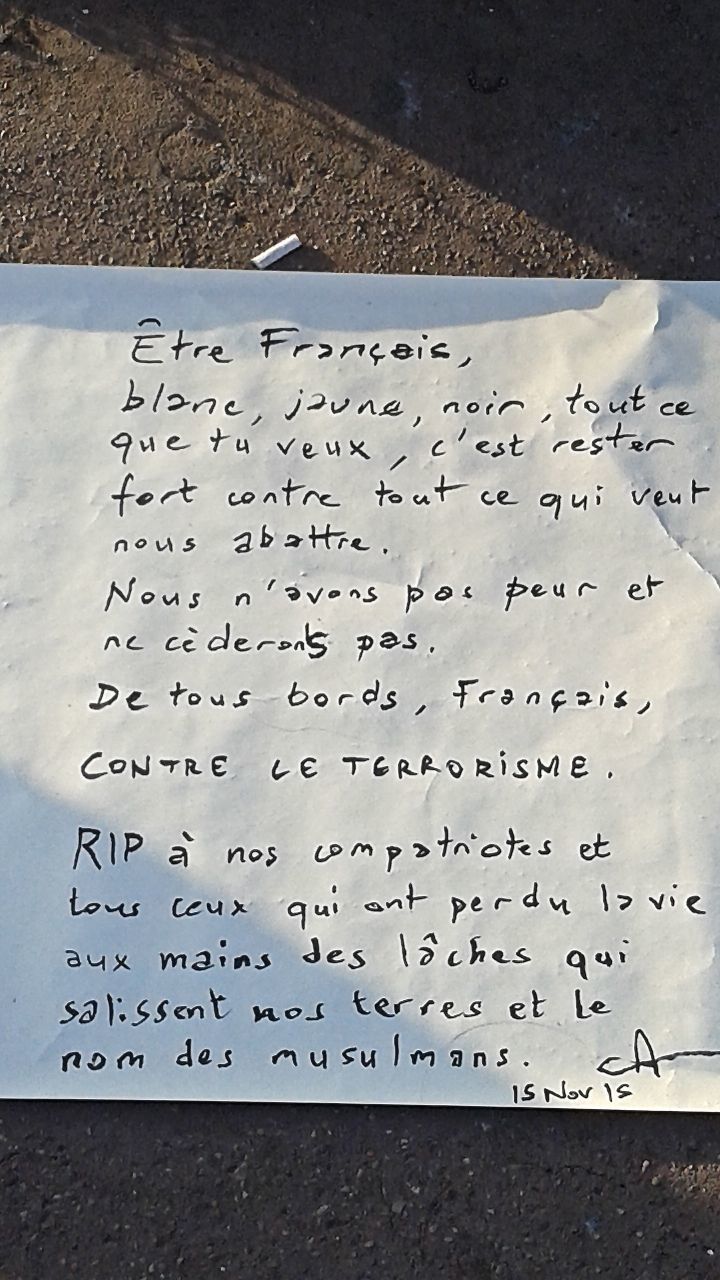 Être Français,
blanc, jaune, noir, tout ce
que tu veux, c'est rester
fort contre tout ce qui veut
nous abattre.
Nous n'avons pas peur et
ne cèderons pas.
De tous bords, Français,
CONTRE LE TERRORISME.
RIP à nos compatriotes et
tous ceux qui ont perdu la vie
aux mains des lâches qui
salissent nos terres et le
nom des musulmans.
15 Nov 15